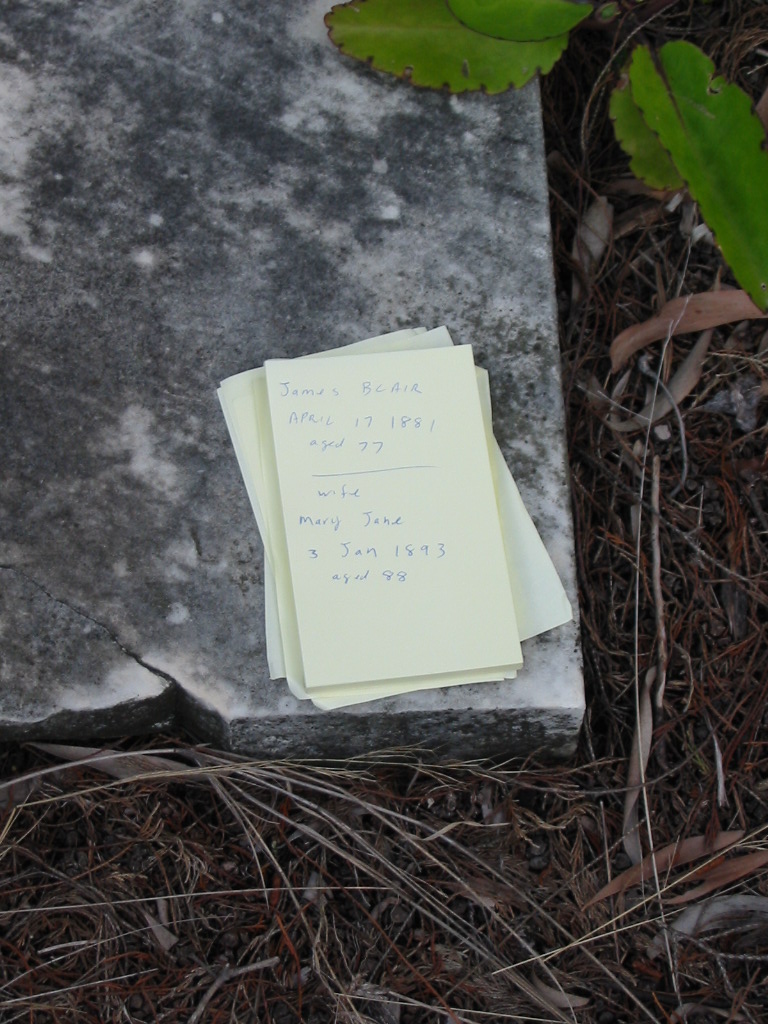 James BLAIR
APRIL 17 1881
aged 77
wife
Mary Jane
3 Jan 1893
aged 88